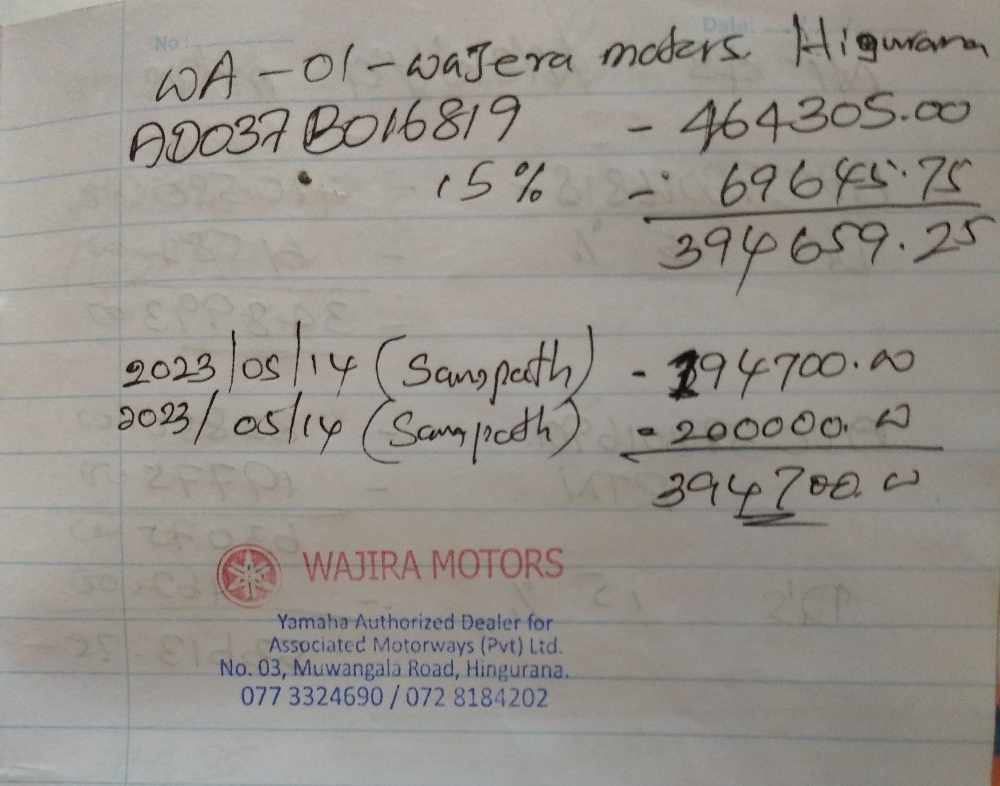 No :
Date:
WA - 01 - waJera moters. Higurana
AD037B016819 - 464305.00
15% - 69645.75
394659.25
2023/05/14 (Sampath) - 194700.00
2023/05/14 (Sampath) - 200000.00
394700.00
WAJIRA MOTORS
Yamaha Authorized Dealer for
Associated Motorways (Pvt) Ltd.
No. 03, Muwangala Road, Hingurana.
077 3324690 / 072 8184202